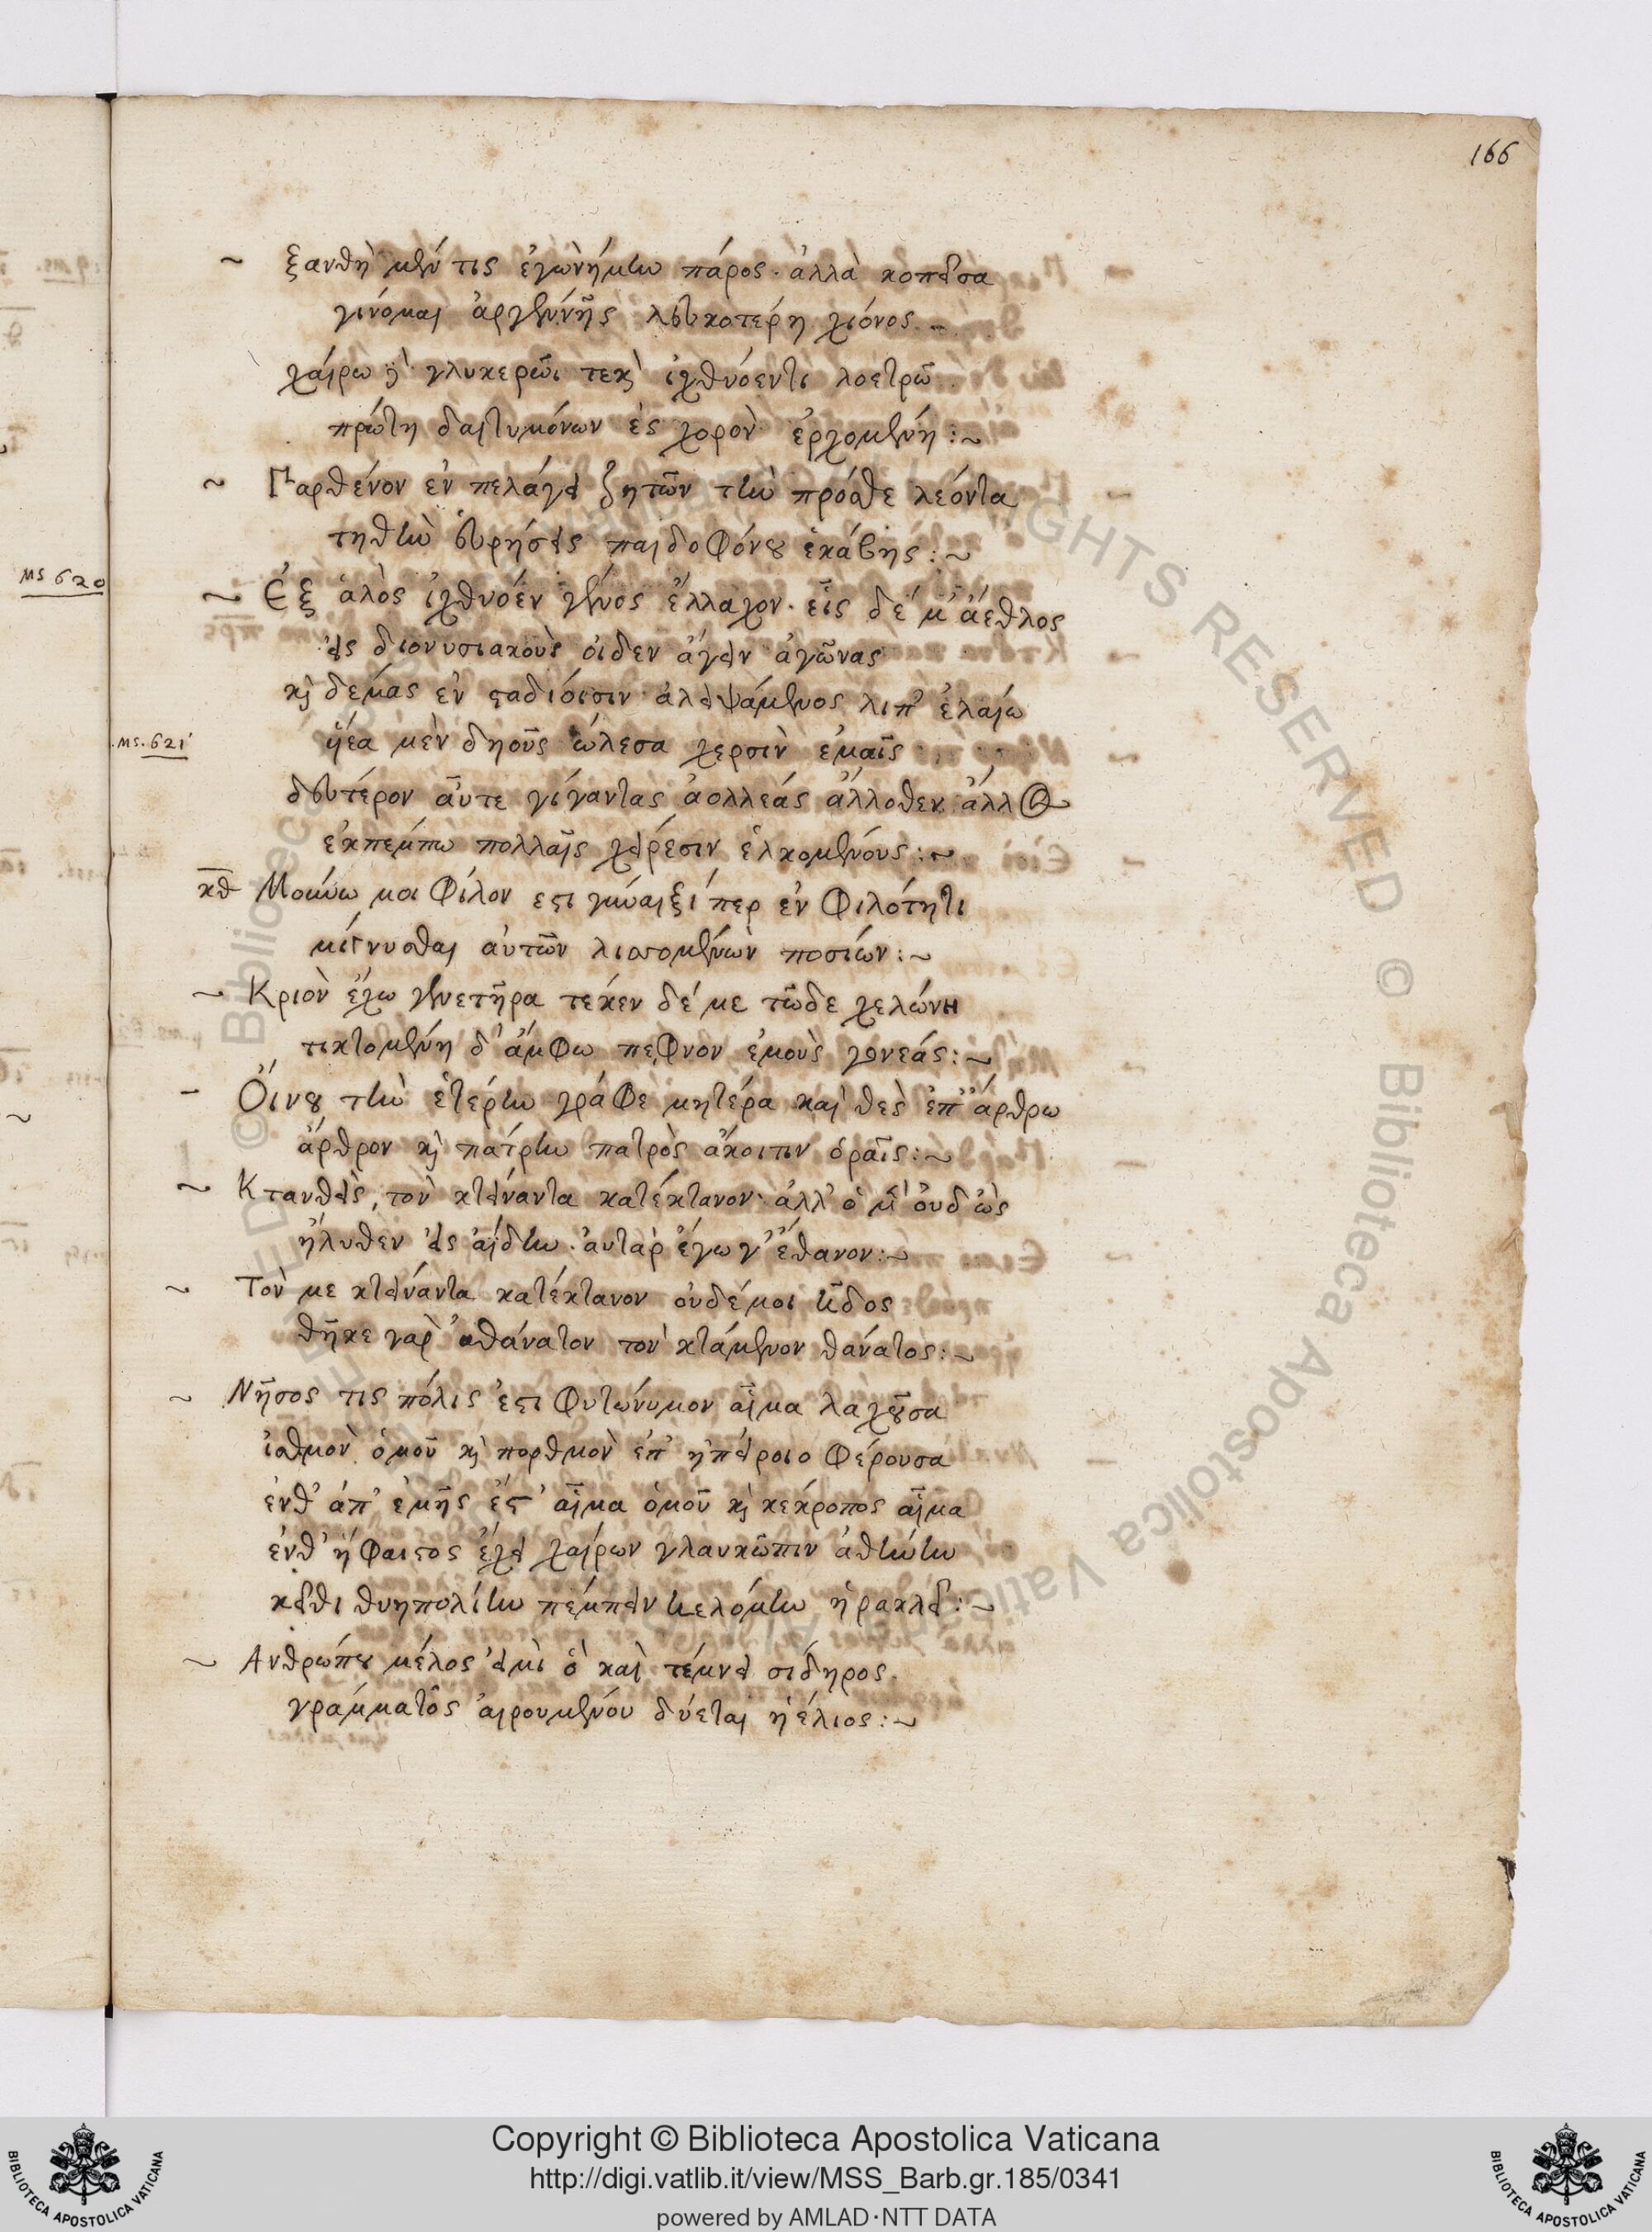 166
~ ξανθὴ μέν τις ἐγὼν ἤμην πάρος· ἀλλὰ κοπεῖσα
γίνομαι ἀργεννῆς λευκοτέρη χιόνος.
χαίρω δὲ γλυκερῶι τε καὶ ἰχθυόεντι λοετρῶ
πρώτη δαιτυμόνων ἐς χορὸν ἐρχομένη:~
~ Παρθένον ἐν πελάγει ζητῶν τὴν πρόσθε λέοντα
τηθὴν εὑρήσεις παιδοφόνου ἑκάβης:~
MS 620
~ Ἐξ ἁλὸς ἰχθυόεν γένος ἔλλαχον· εἷς δέ μ' ἄεθλος
εἰς διονυσιακοὺς οἶδεν ἄγειν ἀγῶνας
καὶ δέμας ἐν σταδίοισιν ἀλειψάμενος λίπ' ἐλαίω
MS. 621
ὑῖέα μὲν δηοῦς ὤλεσα χερσὶν ἐμαῖς
δευτέρον αὖτε γίγαντας ἀολλέας ἄλλοθεν ἄλλος
ἐκπέμπω πολλαῖς χείρεσιν ἑλκομένους:~
κθ Μούνω μοι φίλον ἐστι γυναιξί περ ἐν φιλότητι
μίγνυσθαι αὐτῶν λισσομένων ποσίων:~
~ Κριὸν ἔχω γενετῆρα τέκεν δέ με τῶδε χελώνη
τικτομένη δ' ἄμφω πέφνον ἐμοὺς γονέας:~
- Οἴνου τὴν ἑτέρην γράφε μητέρα καὶ θὲς ἐπ' ἄρθρω
ἄρθρον καὶ πάτρην πατρὸς ἄκοιτιν ὁρᾶις:~
~ Κτανθεὶς, τὸν κτείναντα κατέκτανον· ἀλλ' ὁ μ' οὐδ' ὣς
ἤλυθεν εἰς ἀΐδην· αὐτὰρ ἔγωγ' ἔθανον:~
~ Τὸν με κτείναντα κατέκτανον οὐδέ μοι ἦδος
θῆκε γὰρ ἀθάνατον τὸν κτάμενον θάνατος:~
~ Νῆσος τις πόλις ἐστι φυτώνυμον αἷμα λαχοῦσα
ἰσθμὸν ὁμοῦ καὶ πορθμὸν ἐπ' ἠπείροιο φέρουσα
ἔνθ' ἀπ' ἐμῆς ἔστ' αἷμα ὁμοῦ καὶ κέκροπος αἷμα
ἔνθ' ἥφαιστος ἔχει χαίρων γλαυκῶπιν ἀθήνην
κεῖθι θυηπολίην πέμπειν κελόμην ἡρακλεῖ:~
~ Ἀνθρώπου μέλος εἰμὶ ὃ καὶ τέμνει σίδηρος.
γράμματος αἰρουμένου δύεται ἠέλιος:~
Copyright © Biblioteca Apostolica Vaticana
http://digi.vatlib.it/view/MSS_Barb.gr.185/0341
powered by AMLAD·NTT DATA
BIBLIOTECA APOSTOLICA VATICANA
BIBLIOTECA APOSTOLICA VATICANA